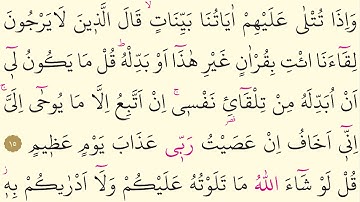 وَاِذَا تُتْلٰى عَلَيْهِمْ اٰيَاتُنَا بَيِّنَاتٍۙ قَالَ الَّذٖينَ لَا يَرْجُونَ
لِقَٓاءَنَا ائْتِ بِقُرْاٰنٍ غَيْرِ هٰذَٓا اَوْ بَدِّلْهُؕ قُلْ مَا يَكُونُ لٖٓي
اَنْ اُبَدِّلَهُ مِنْ تِلْقَٓائِ۬ نَفْسٖيۚ اِنْ اَتَّبِعُ اِلَّا مَا يُوحٰٓى اِلَيَّۚ
اِنّٖٓي اَخَافُ اِنْ عَصَيْتُ رَبّٖي عَذَابَ يَوْمٍ عَظٖيمٍ ١٥
قُلْ لَوْ شَٓاءَ اللّٰهُ مَا تَلَوْتُهُ عَلَيْكُمْ وَلَٓا اَدْرٰيكُمْ بِهٖؗ